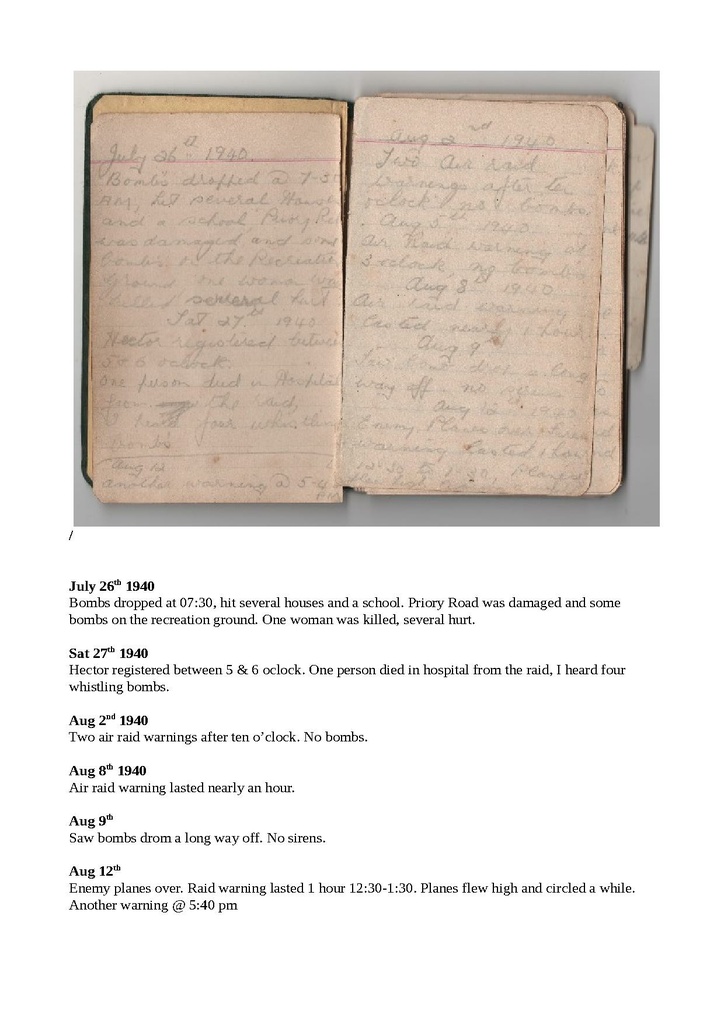 July 26th 1940.
Bombs dropped @ 7-30
AM, hit several Houses
and a school Priory Rd
was damaged and some
bombs on the Recreation
Ground one woman was
killed several hurt
Sat 27th 1940
Hector registered between
5 & 6 oclock.
One person died in Hospital
from the raid,
I heard four whistling
bombs
Aug 12
another warning @ 5-4
Aug 2nd 1940
Two Air raid
warnings after ten
oclock no bombs
Aug 5th 1940.
Air Raid warning at
3 oclock, no bombs
Aug 8th 1940
Air raid warning
lasted nearly 1 hour
Aug 9th
bombs drop a long
way off no
Aug 12th 1940
Enemy Planes over
warning lasted 1 hour
12-30 to 1-30, Planes
high
/
July 26th 1940
Bombs dropped at 07:30, hit several houses and a school. Priory Road was damaged and some
bombs on the recreation ground. One woman was killed, several hurt.
Sat 27th 1940
Hector registered between 5 & 6 oclock. One person died in hospital from the raid, I heard four
whistling bombs.
Aug 2nd 1940
Two air raid warnings after ten o’clock. No bombs.
Aug 8th 1940
Air raid warning lasted nearly an hour.
Aug 9th
Saw bombs drom a long way off. No sirens.
Aug 12th
Enemy planes over. Raid warning lasted 1 hour 12:30-1:30. Planes flew high and circled a while.
Another warning @ 5:40 pm